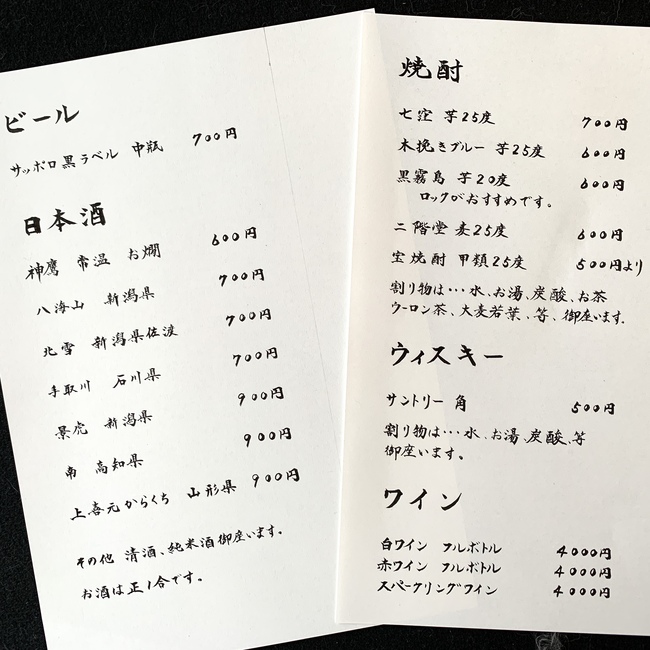 ビール
サッポロ黒ラベル 中瓶 700円
日本酒
神鷹 常温 お燗 600円
八海山 新潟県 700円
北雪 新潟県佐渡 700円
手取川 石川県 700円
景虎 新潟県 900円
南 高知県 900円
上喜元からくち 山形県 900円
その他 清酒、純米酒御座います。
お酒は正1合です。
焼酎
七窪 芋25度 700円
木挽きブルー 芋25度 600円
黒霧島 芋20度 600円
ロックがおすすめです。
二階堂 麦25度 600円
宝焼酎 甲類25度 500円より
割り物は…水、お湯、炭酸、お茶
ウーロン茶、大麦若葉、等、御座います。
ウィスキー
サントリー 角 500円
割り物は…水、お湯、炭酸、等
御座います。
ワイン
白ワイン フルボトル 4000円
赤ワイン フルボトル 4000円
スパークリングワイン 4000円